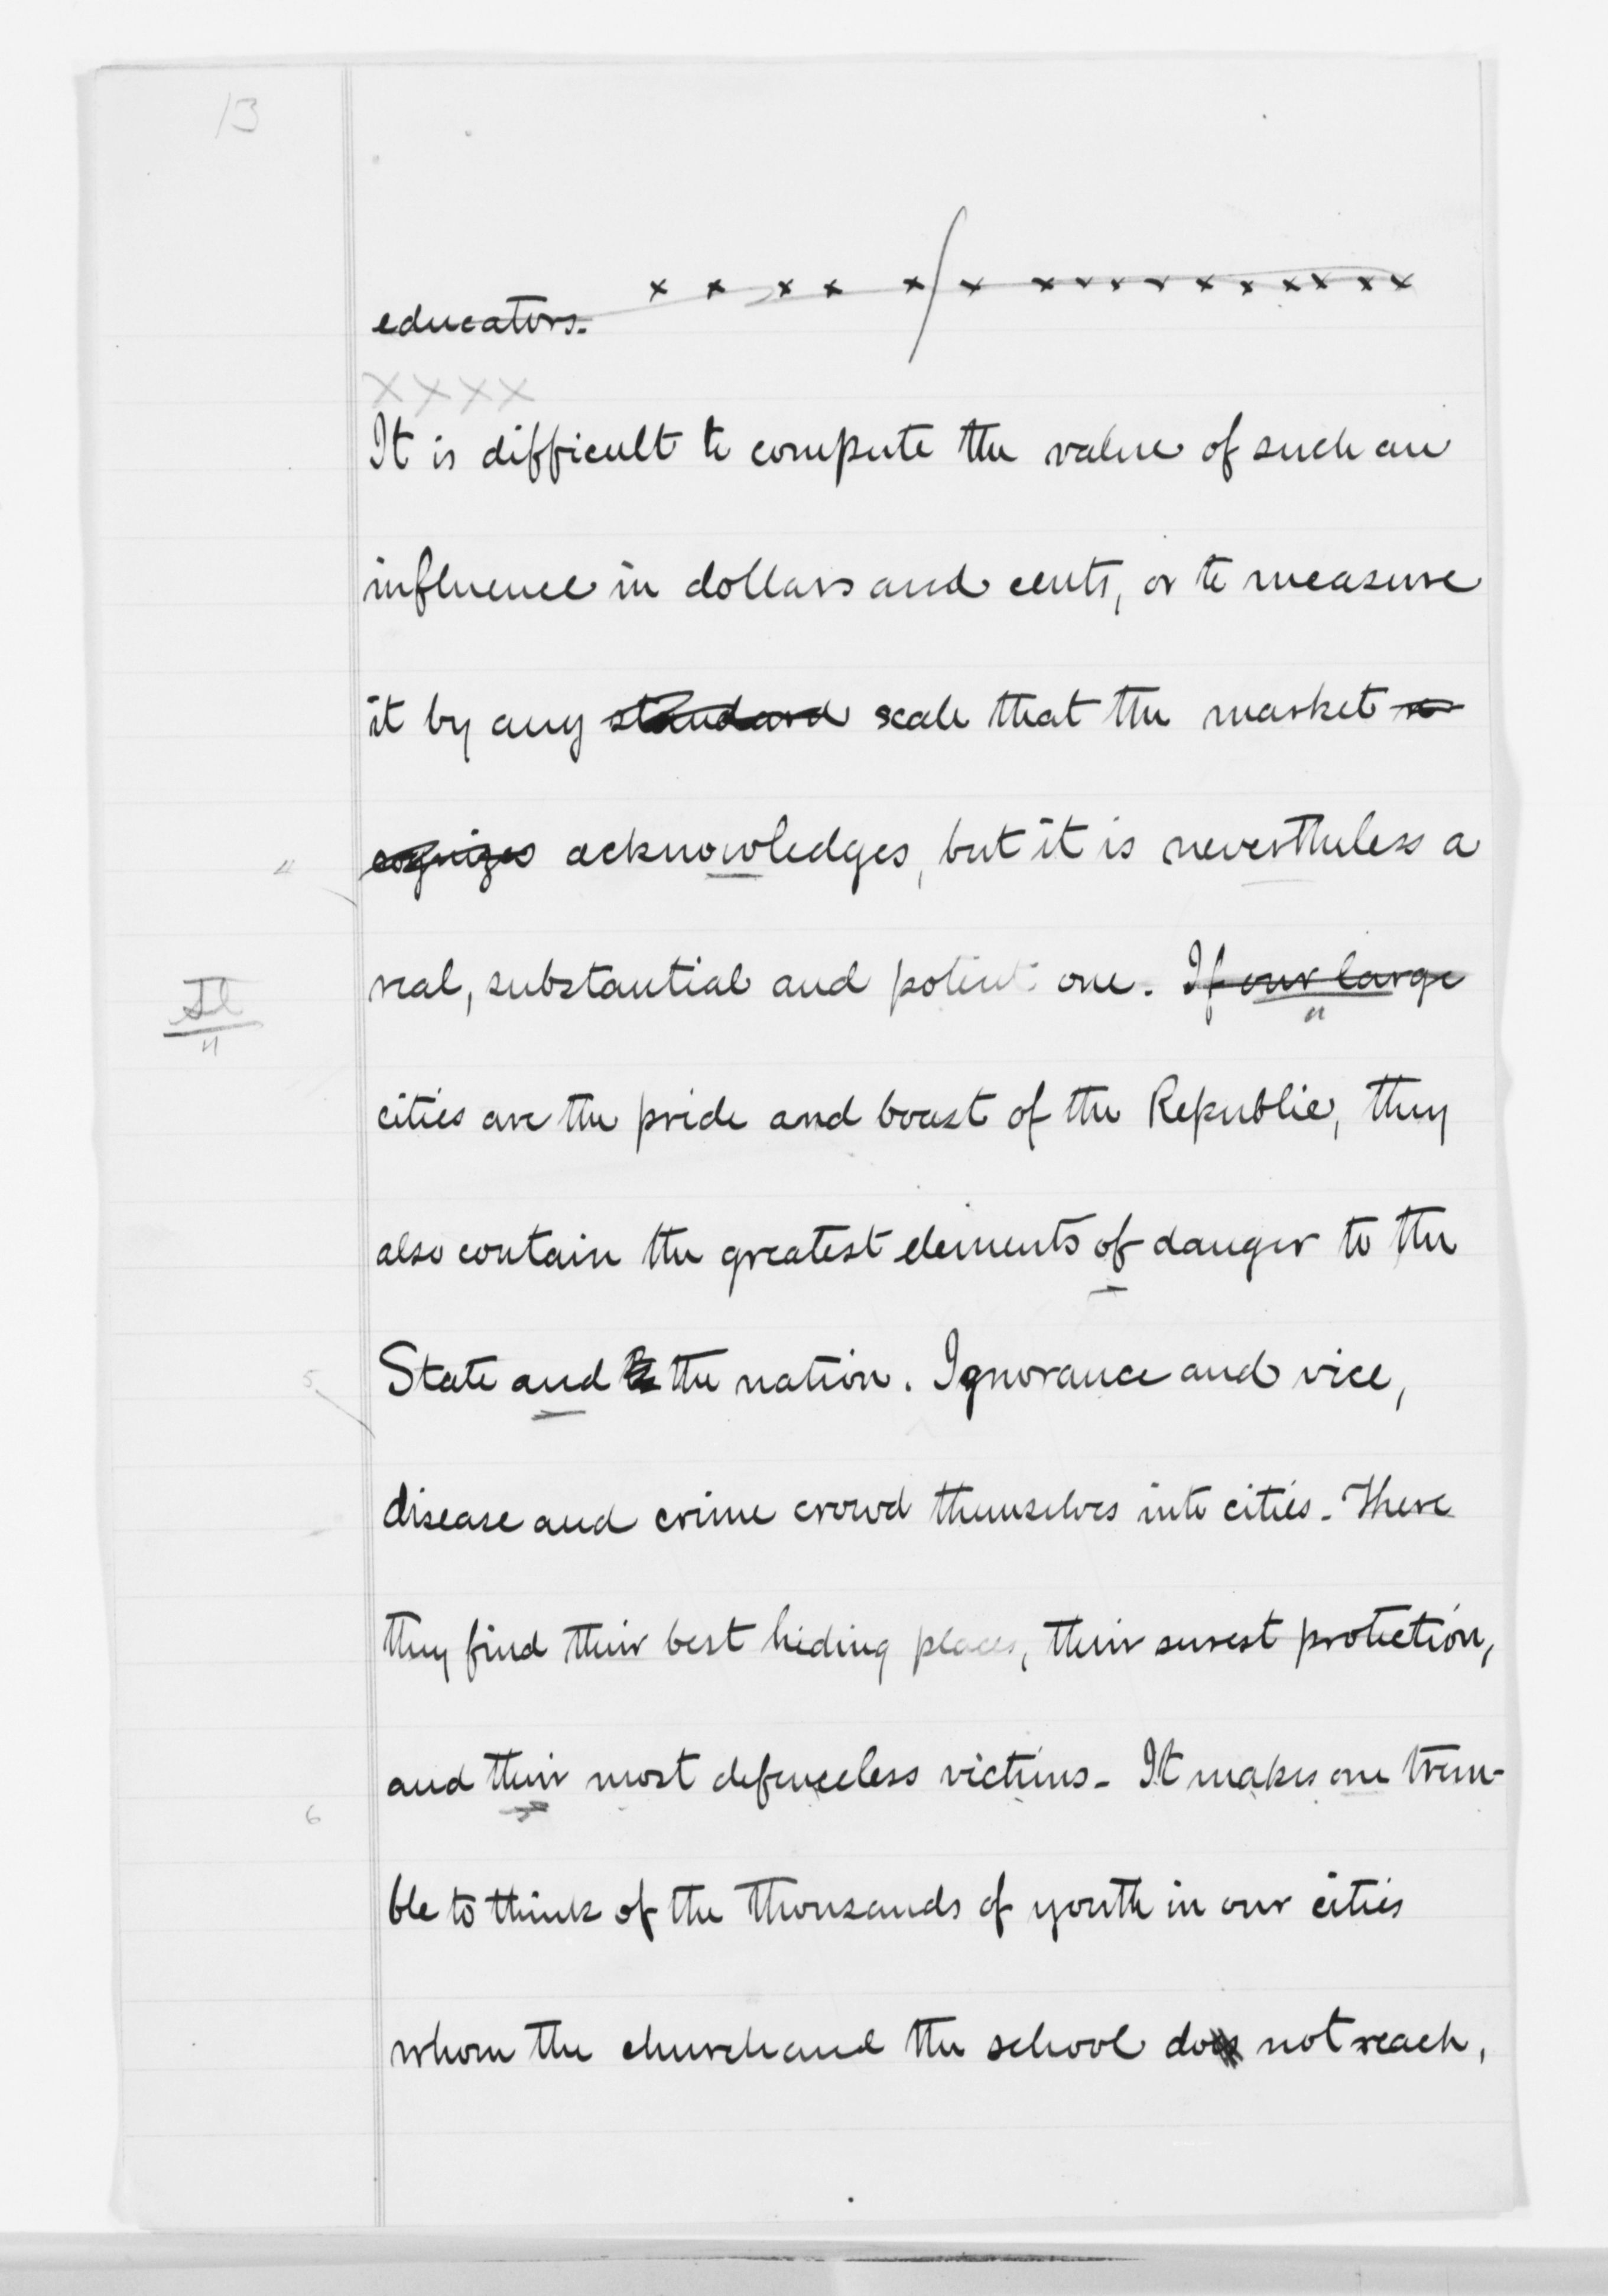 13
educators. x x x x x x x x x x x x x x x x
xxxx
It is difficult to compute the value of such an
influence in dollars and cents, or to measure
it by any standard scale that the market re
cognizes acknowledges, but it is nevertheless a
4
real, substantial and potent one. If our large
cities are the pride and boast of the Republic, they
also contain the greatest elements of danger to the
State and to the nation. Ignorance and vice,
5
disease and crime crowd themselves into cities. There
they find their best hiding places, their surest protection,
and their most defenceless victims. It makes one trem-
6
ble to think of the thousands of youth in our cities
whom the church and the school does not reach,